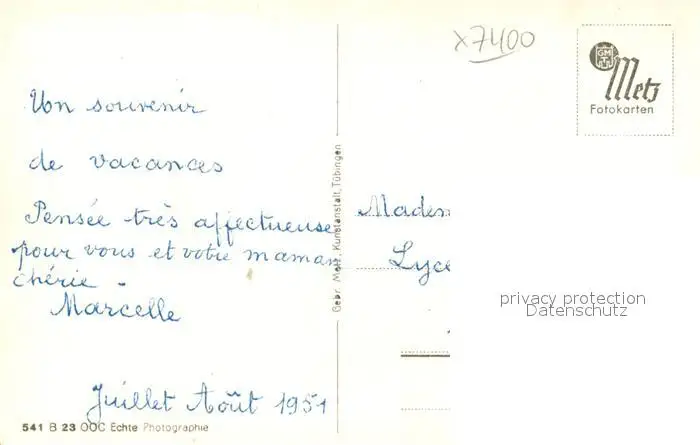 x7400
GMT
Metz
Fotokarten
Un souvenir
de vacances
Pensée très affectueuse
pour vous et votre maman
chérie.
Marcelle
Juillet Août 1951
541 B 23 OOC Echte Photographie
Gebr. Metz, Kunstanstalt, Tübingen
Madem
Lyce
privacy protection
Datenschutz